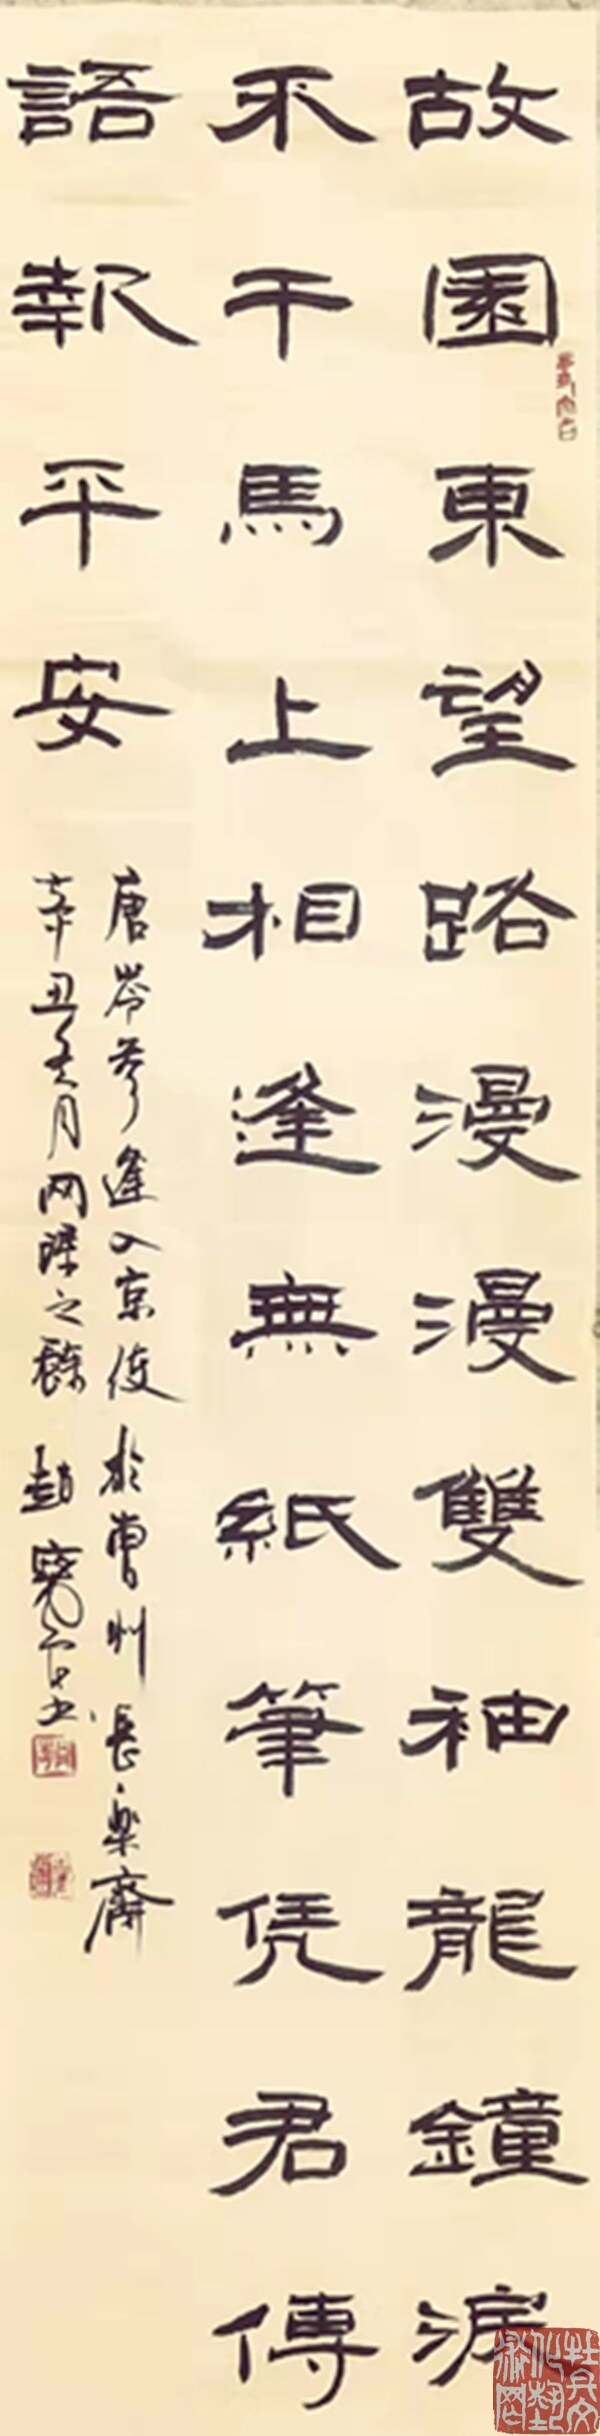 故園東望路漫漫雙袖龍鐘淚
不干馬上相逢無紙筆凭君傳
語報平安
唐岑參逢入京使於曹州長樂齋
辛丑冬月网課之餘趙